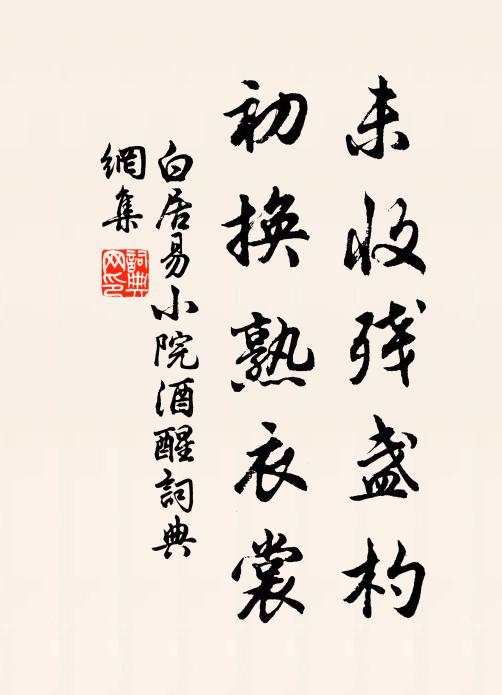 未收残盏杓
初换熟衣裳
白居易小院酒醒詞典
網集
詞典网印